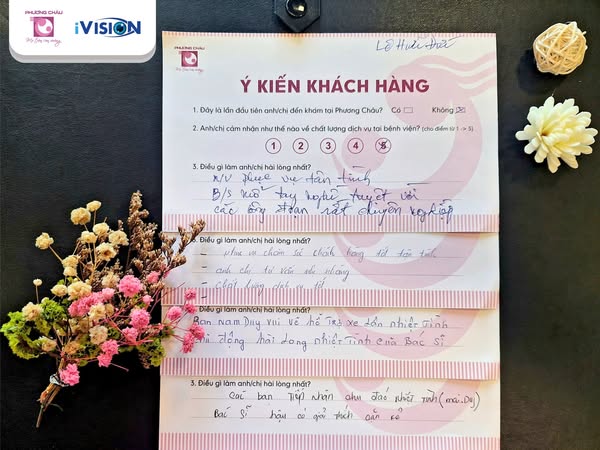 PHƯƠNG CHÂU
iVISION
PHƯƠNG CHÂU
Lê Hữu
Ý KIẾN KHÁCH HÀNG
1. Đây là lần đầu tiên anh/chị đến khám tại Phương Châu? Có Không
2. Anh/chị cảm nhận như thế nào về chất lượng dịch vụ tại bệnh viện? (cho điểm từ 1 -> 5)
1 2 3 4 5
3. Điều gì làm anh/chị hài lòng nhất?
N/V phục vụ tận tình
B/S mổ tay nghề tuyệt vời
các công đoạn rất chuyên nghiệp
3. Điều gì làm anh/chị hài lòng nhất?
- phục vụ chăm sóc khách hàng tốt tận tình
- anh chị tư vấn nhẹ nhàng
- chất lượng dịch vụ tốt
-
Bạn Nam Duy vui vẻ hỗ trợ xe dẫn nhiệt tình
chu động hài lòng nhiệt tình của Bác Sĩ
3. Điều gì làm anh/chị hài lòng nhất?
Các bạn tiếp nhận chu đáo nhiệt tình (mai. Duy)
Bác sĩ hậu có giải thích cặn kẽ